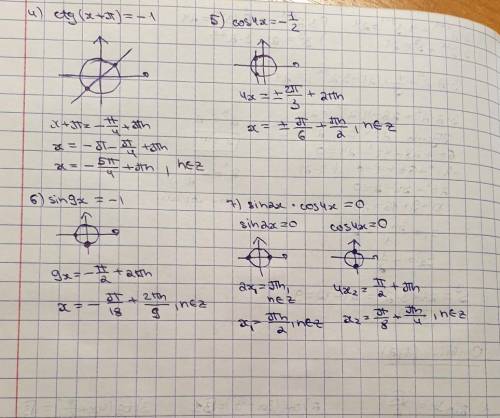 4) ctg(x+π)=-1
x+π=-π/4+πn
x=-π-π/4+πn
x=-5π/4+πn, n∈z
5) cos4x=-1/2
4x=±2π/3+2πn
x=±π/6+πn/2, n∈z
6) sin9x=-1
9x=-π/2+2πn
x=-π/18+2πn/9, n∈z
7) sin2x·cos4x=0
sin2x=0 cos4x=0
2x₁=πn, n∈z
x₁=πn/2, n∈z
4x₂=π/2+πn
x₂=π/8+πn/4, n∈z